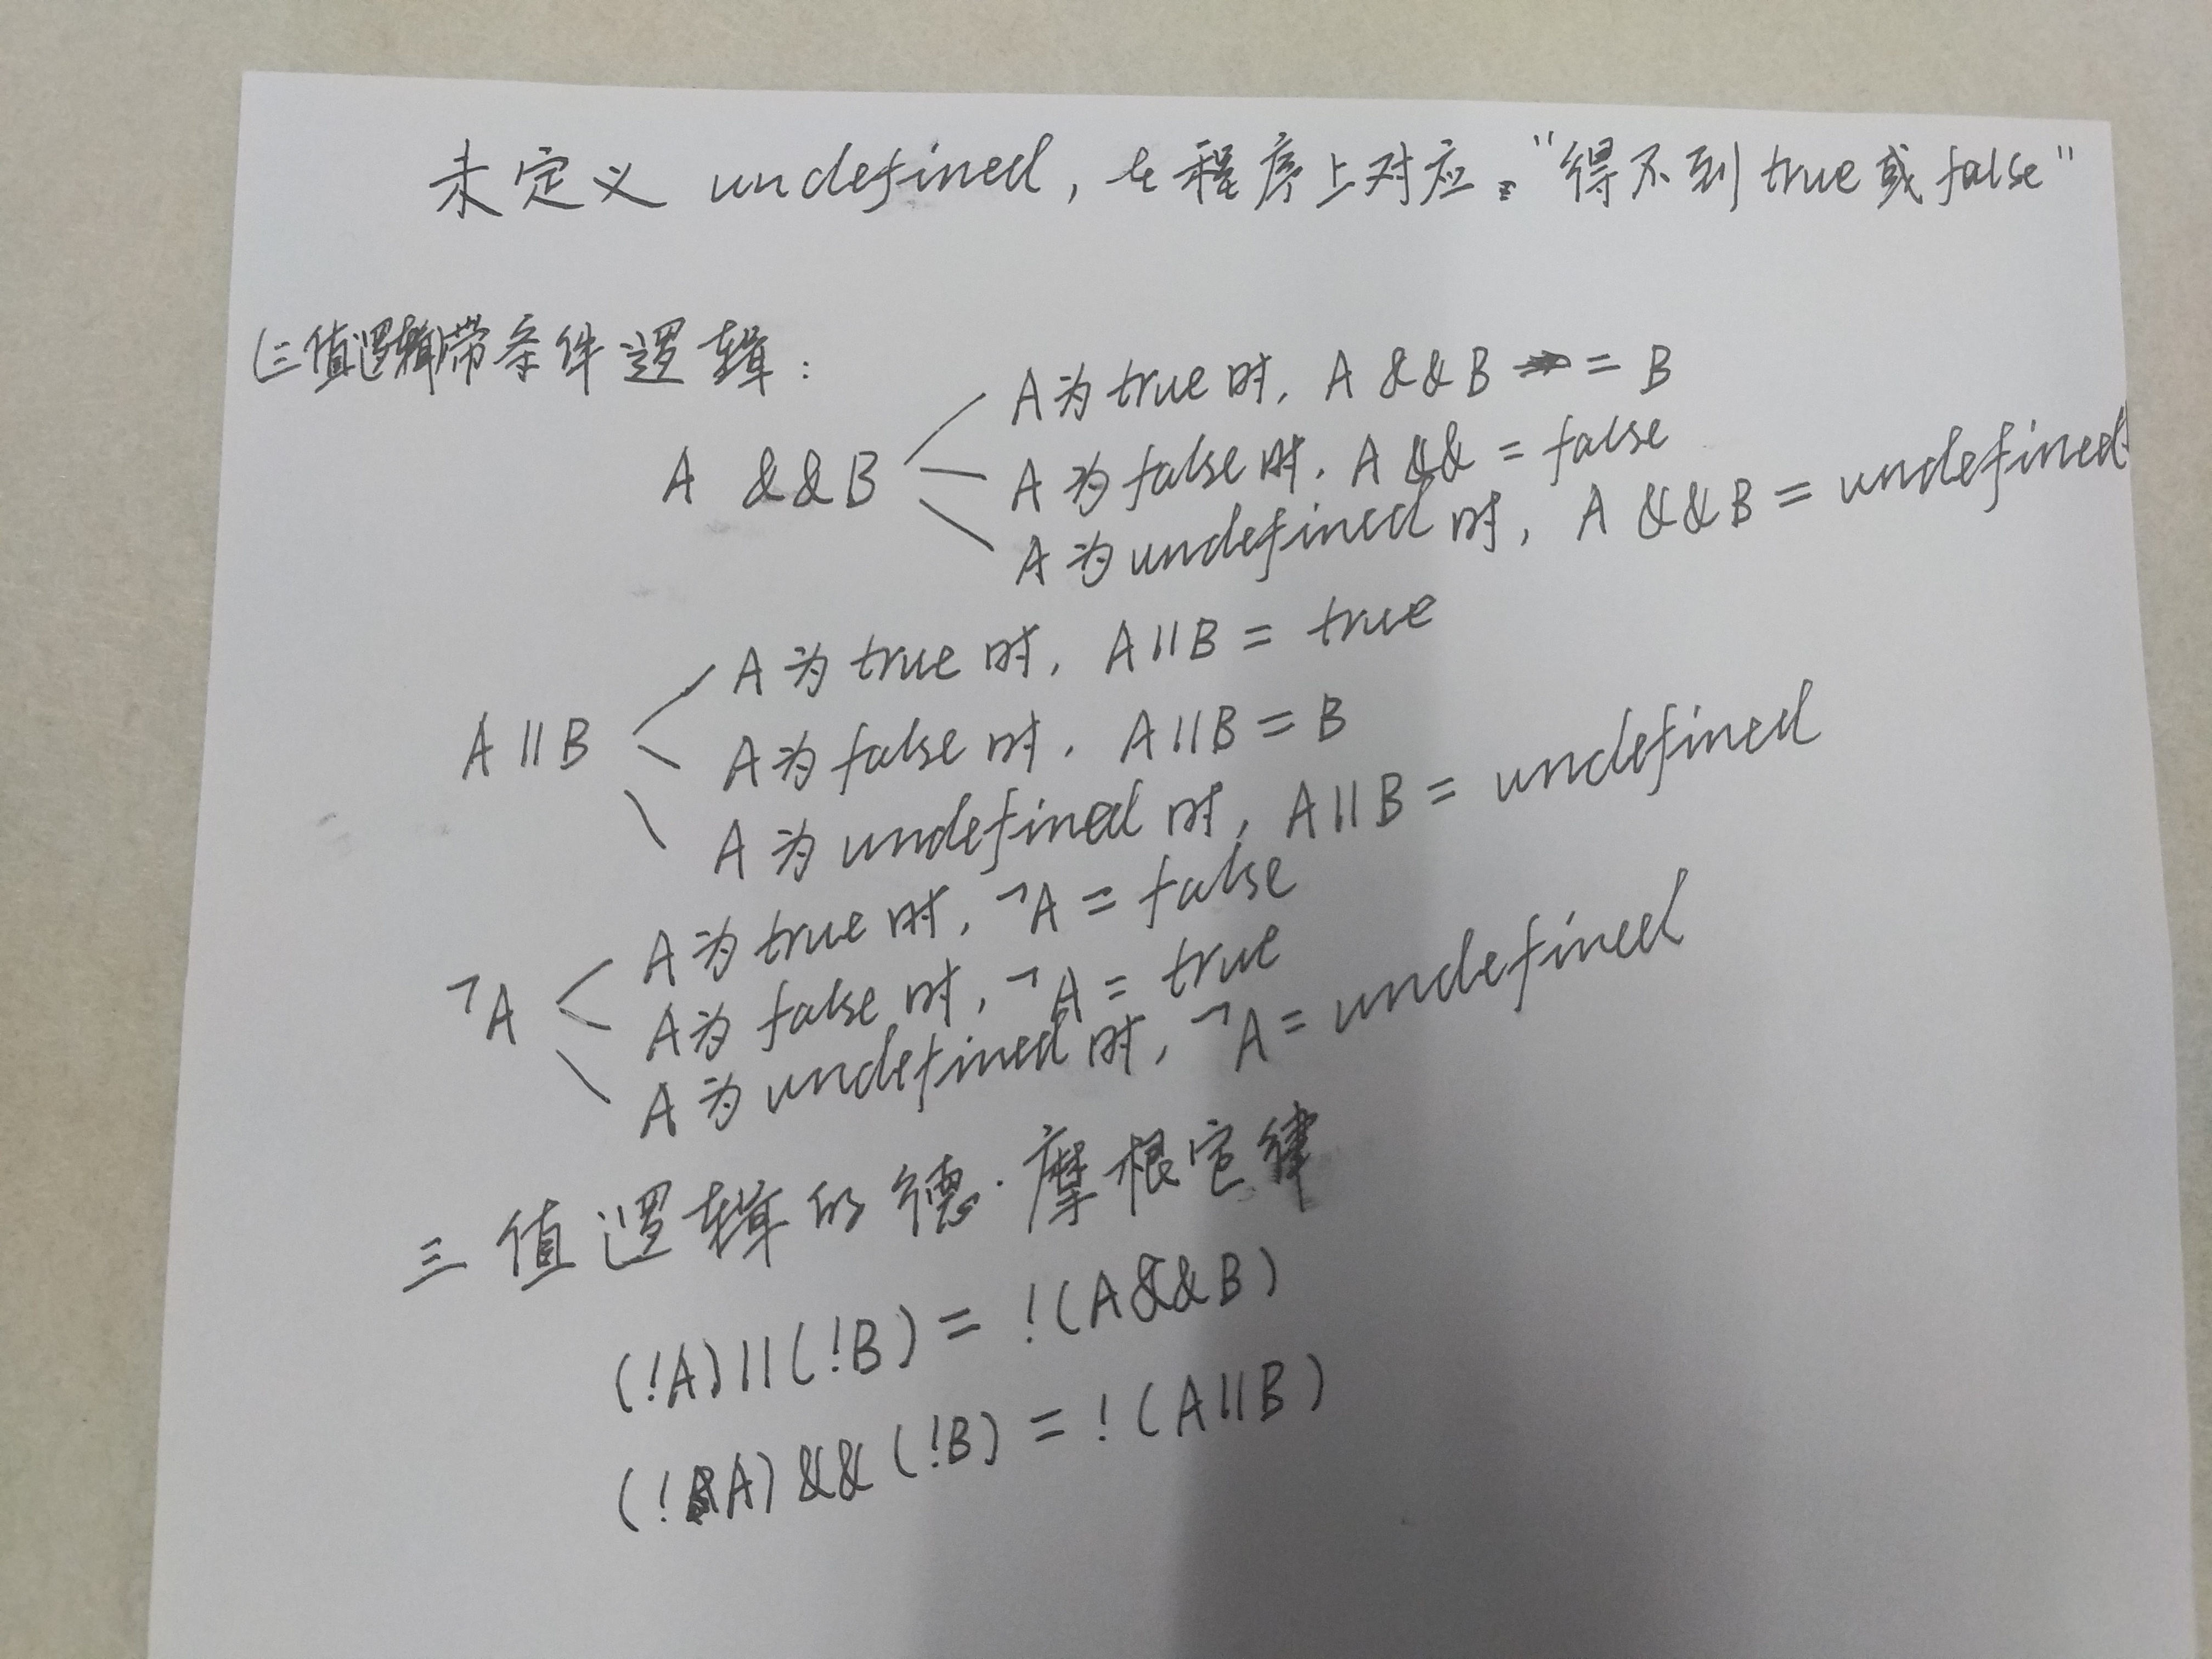 未定义 undefined, 在程序上对应: "得不到true或false"
(三值逻辑)带条件逻辑:
A为true时, A &&B = B
A &&B
A为false时, A && = false
A为undefined时, A &&B = undefined
A为true时, A||B = true
A||B
A为false时, A||B = B
A为undefined时, A||B = undefined
A为true时, ¬A = false
¬A
A为false时, ¬A = true
A为undefined时, ¬A = undefined
三值逻辑的德·摩根定律
(!A)||(!B) = !(A&&B)
(!A)&&(!B) = !(A||B)